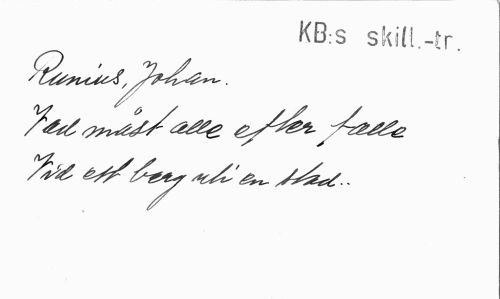 KB:s skill.-tr.
Runius, Johan.
Vad måst alle efter falle
Vid ett berg uti en stad..